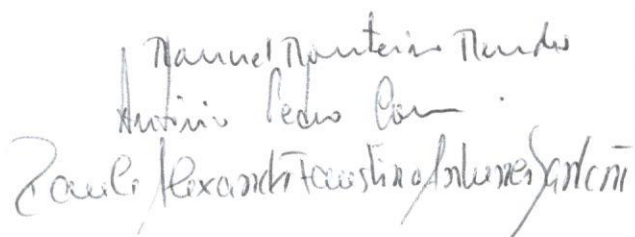 Manuel Monteiro Mendes
António Pedro
Paulo Alexandre Faustino Antunes